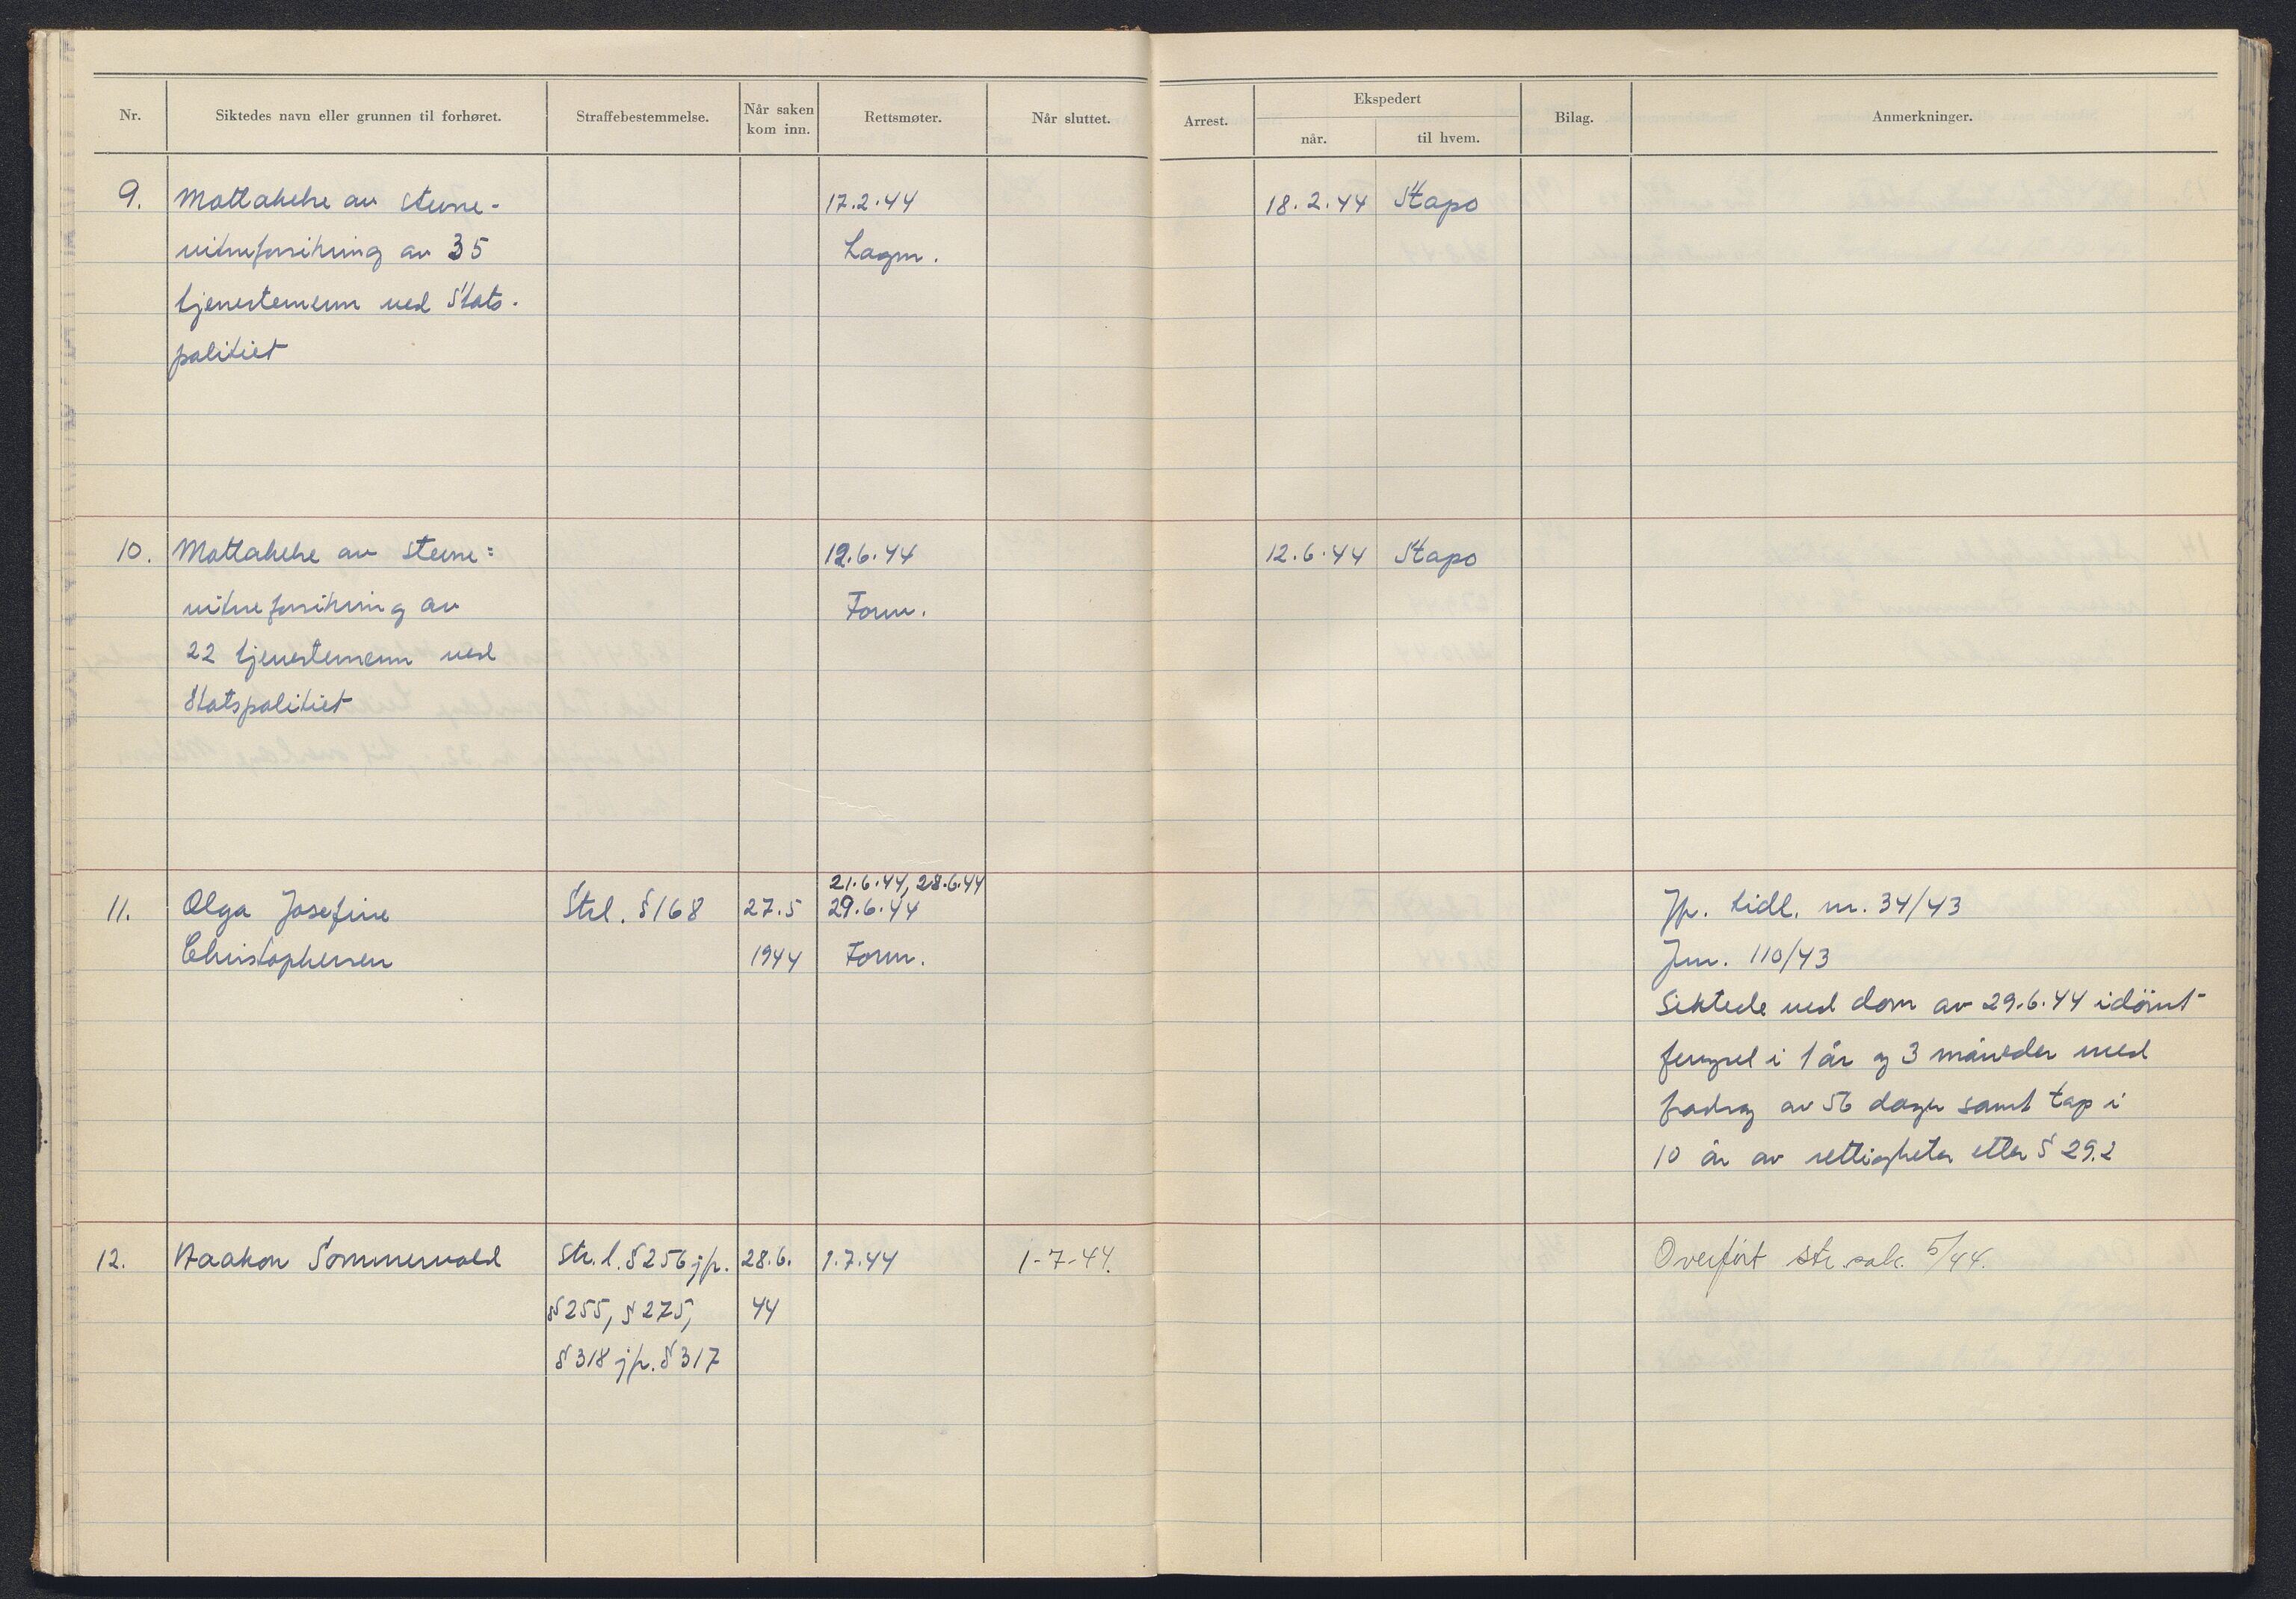 Nr. Siktedes navn eller grunnen til forhøret. Straffebestemmelse. Når saken kom inn. Rettsmøter. Når sluttet. Arrest. Ekspedert når. til hvem. Bilag. Anmerkninger.
9. Mottakelse av stevne- 17.2.44 18.2.44 Stapo
vitneforsikring av 35 Lagm.
tjenestemenn ved Stats-
politiet
10. Mottakelse av stevne= 12.6.44 12.6.44 Stapo
vitneforsikring av Form.
22 tjenestemenn ved
Statspolitiet
21.6.44, 28.6.44
11. Olga Josefine Strl. § 168 27.5 29.6.44 Jfr. tidl. nr. 34/43
Christophersen 1944 Form. Jnr. 110/43
Siktede ved dom av 29.6.44 idömt
fengsel i 1 år og 3 måneder med
fradrag av 56 dager samt tap i
10 år av rettigheter etter § 29.2
12. Haakon Sommervold Str.l. § 256 jfr. 28.6. 1.7.44 1-7-44. Overfört str.sak. 5/44.
§ 255, § 275, 44
§ 318 jfr. § 317